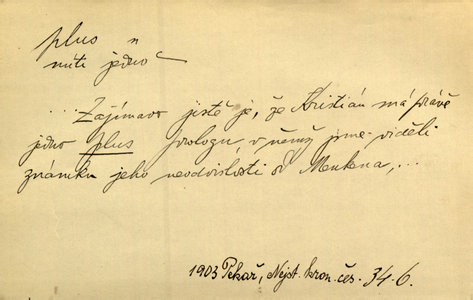 plus n
míti jedno
... Zajímavo jistě je, že Kristián má právě
jedno plus prologu, v němž jsme viděli
známku jeho neodvislosti od Menkena, ...
1903 Pekař, Nejst. kron. čes. 34. 6.